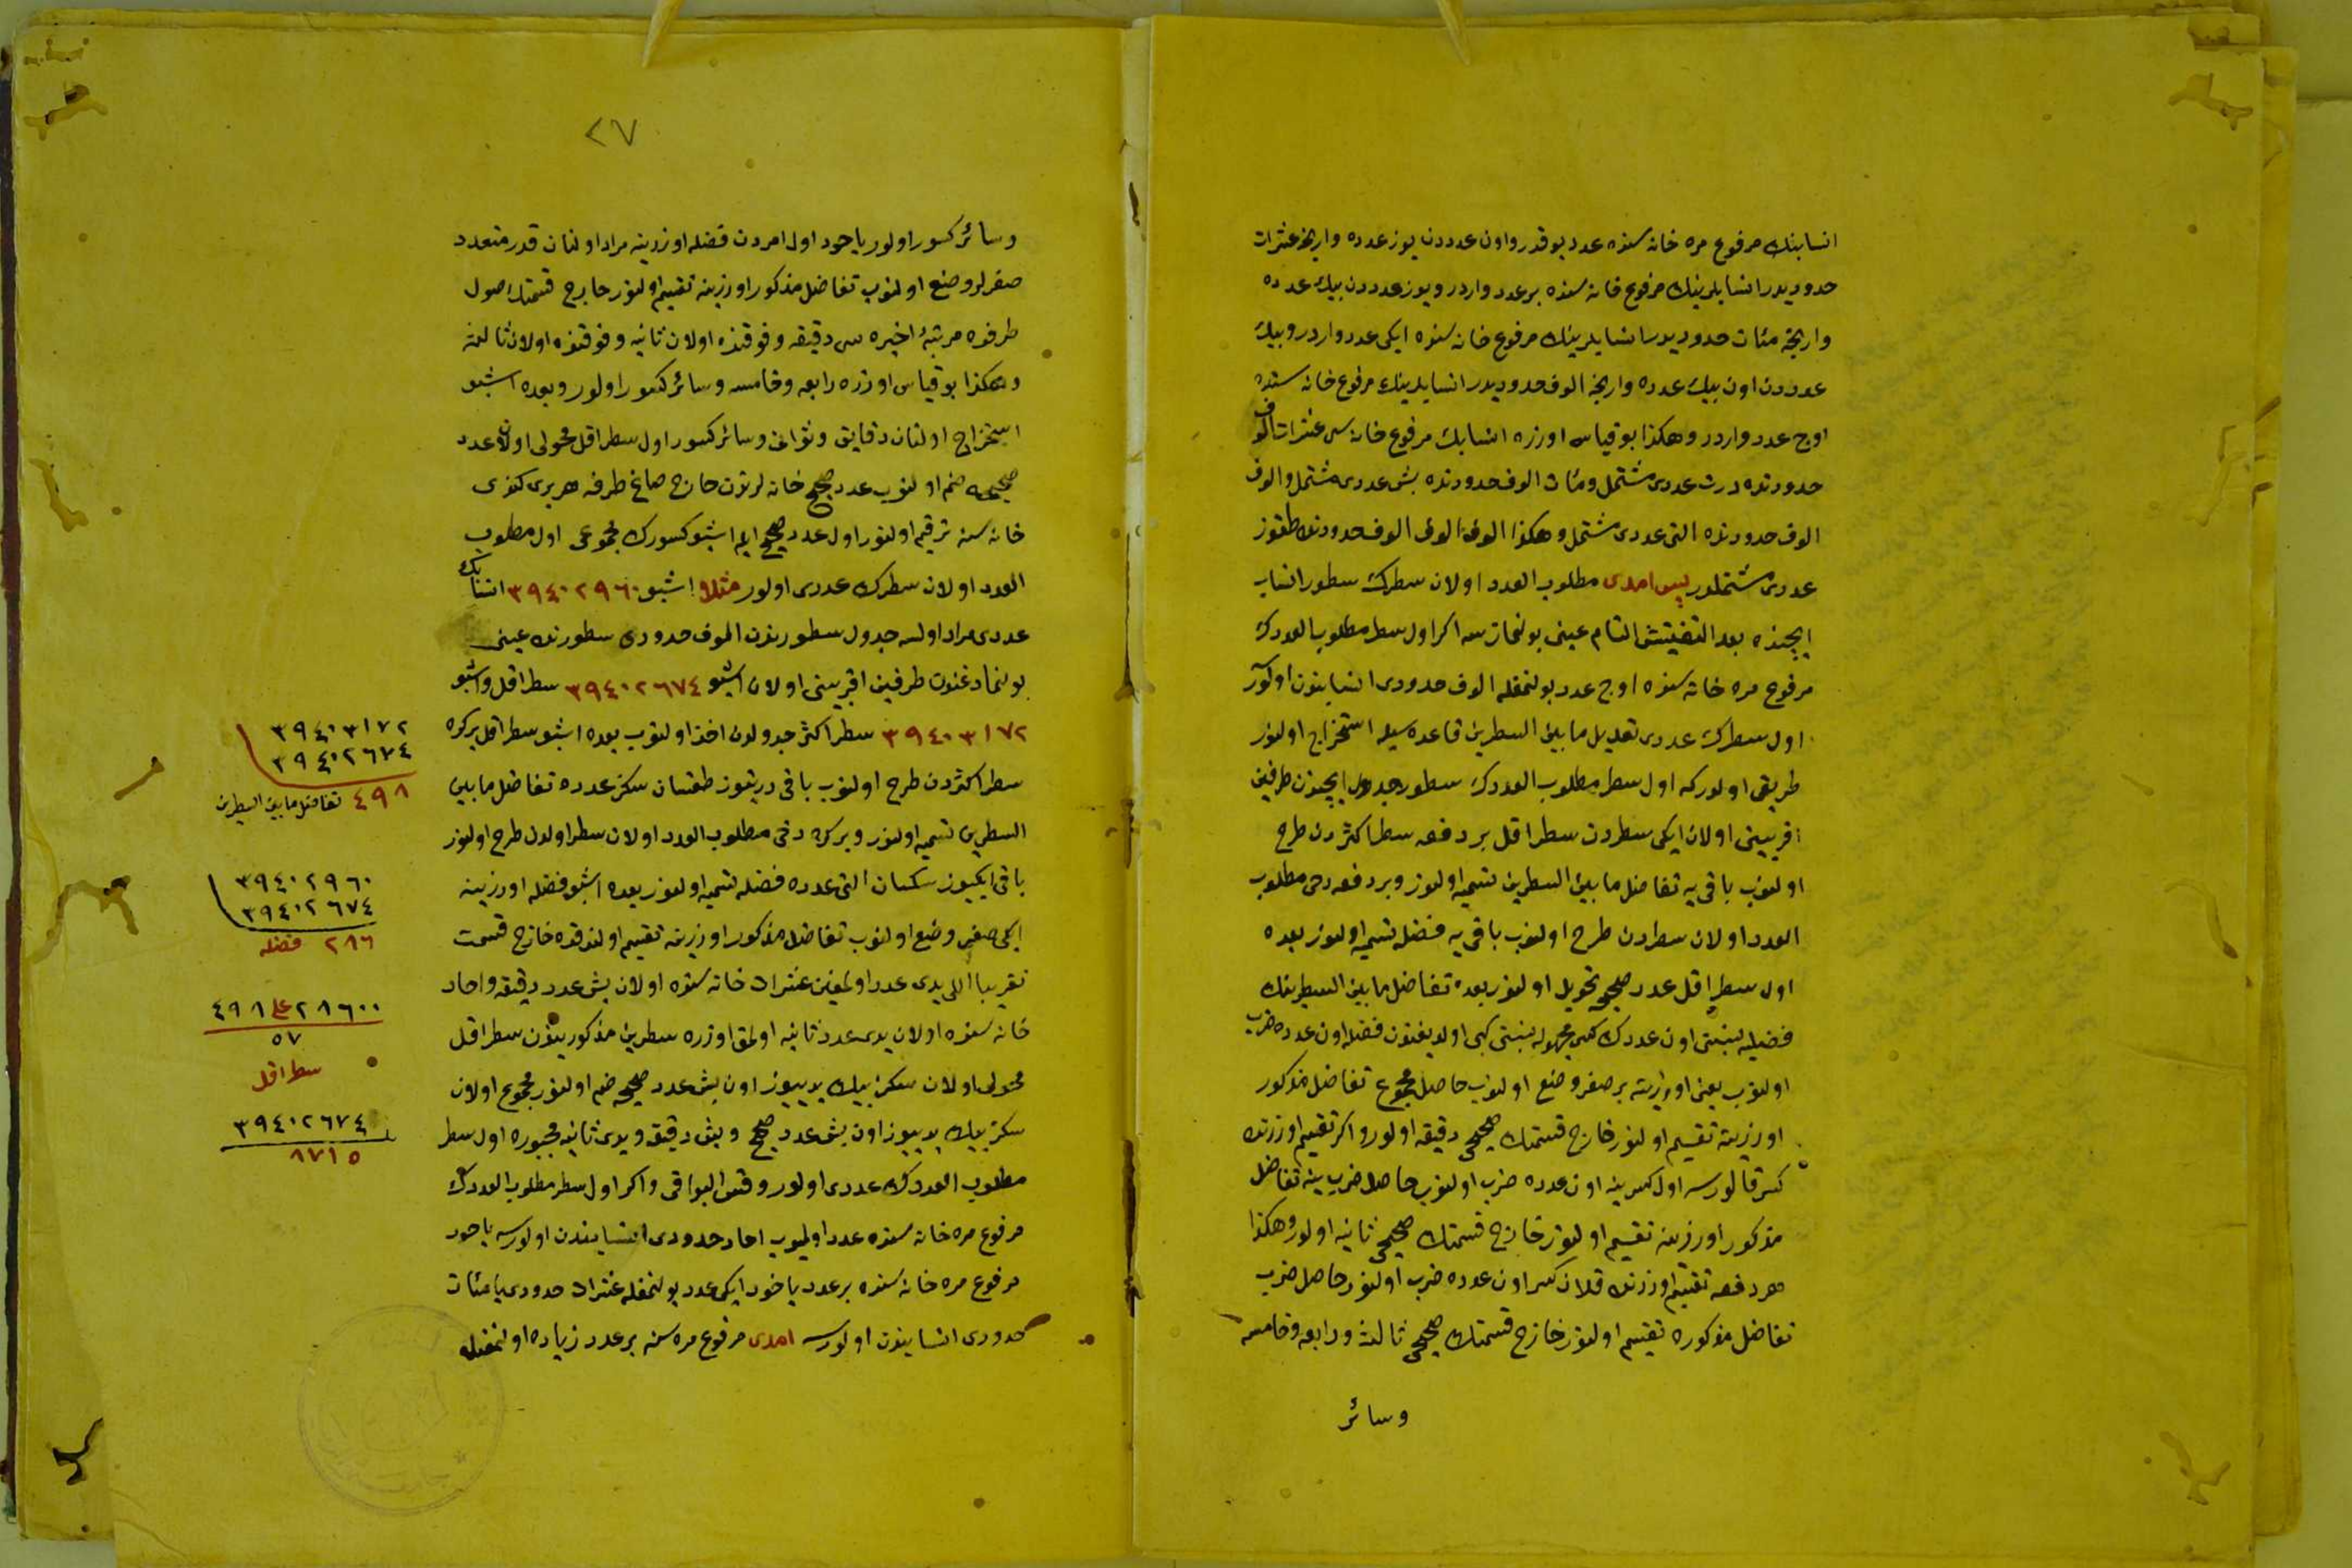 انسابنك مرفوع مره خانه سنده عدد يوقدر واون عدددن يوز عدده وارنجه عشرات
حدوديدر انسابلرينك مرفوع خانه سنده بر عدد واردر ويوز عدددن بيك عدده
وارنجه مئات حدوديدر انسابلرينك مرفوع خانه سنده ايكى عدد واردر وبيك
عدددن اون بيك عدده وارنجه الوف حدوديدر انسابلرينك مرفوع خانه سنده
اوچ عدد واردر وهكذا بو قياس اوزره انسابك مرفوع خانه سى عشرات الوف
حدودنده درت عددى مشتمل ومئات الوف حدودنده بش عددى مشتمل والوف
الوف حدودنده التى عددى مشتمل وهكذا الوف الوف الوف حدودنده طقوز
عددى مشتملدر پس امدى مطلوب العدد اولان سطرك سطور انساب
ايچنده بعد التفتيش التام عينى بولنماز سه اكر اول سطر مطلوب العددك
مرفوع مره خانه سنده اوچ عدد بولنمغله الوف حدودى انسابندن اولور
اول سطرك عددى تعديل ما بين السطرين قاعده سيله استخراج اولنور
طريقى اولدركه اول سطر مطلوب العددك سطور جدول ايچندن طرفين
اقربيتى اولان ايكى سطردن سطر اقل بر دفعه سطر اكثردن طرح
اولنوب باقى يه تفاضل ما بين السطرين تسميه اولنور وبر دفعه دخى مطلوب
العدد اولان سطردن طرح اولنوب باقى يه فضله تسميه اولنور بعده
اول سطر اقل عدد صحيحه تحويل اولنور بعده تفاضل ما بين السطرينك
فضليه نسبتى اون عددك كسر مجهوله نسبتى كبى اولديغندن فضله اون عدده ضرب
اولنوب يعنى اوزرينه بر صفر وضع اولنوب حاصل مجموع تفاضل مذكور
اوزرينه تقسيم اولنور خارج قسمتك صحيحى دقيقه اولور واكر تقسيم اوزرنده
كسر قالورسه اول كسرينه اون عدده ضرب اولنوب حاصل ضرب ينه تفاضل
مذكور اوزرينه تقسيم اولنور خارج قسمتك صحيحى ثانيه اولور وهكذا
هر دفعه تقسيم اوزرنده قلان كسر اون عدده ضرب اولنور حاصل ضرب
تفاضل مذكوره تقسيم اولنور خارج قسمتك صحيحى ثالثه ورابعه وخامسه
وسائر
٢٧
وسائر كسور اولور ياخود اول امردن فضله اوزرينه مراد اولنان قدر متعدد
صفرلر وضع اولنوب تفاضل مذكور اوزرينه تقسيم اولنور خارج قسمتك صول
طرفنده مرتبۀ اخيره سى دقيقه وفوقنده اولان ثانيه وفوقنده اولان ثالثه
وهكذا بو قياس اوزره رابعه وخامسه وسائر كسور اولور وبعده اشبو
استخراج اولنان دقايق وثوانى وسائر كسور اول سطر اقل محولى اولان عدد
صحيحه ضم اولنوب عدد صحيح خانه لرندن خارج صاغ طرفه هر برى كندى
خانه سنه ترقيم اولنور اول عدد صحيح ايله اشبو كسورك مجموعى اول مطلوب
العدد اولان سطرك عددى اولور مثلا اشبو ٣٩٤٠٢٩٦٠ انسابك
عددى مراد اولسه جدول سطورندن الوف حدودى سطورنده عينى
بولنمادغندن طرفين اقربيتى اولان اشبو ٣٩٤٠٢٦٧٤ سطر اقل واشبو
٣٩٤٠٣١٧٢ سطر اكثر جدولدن اخذ اولنوب بعده اشبو سطر اقل بر كره
سطر اكثردن طرح اولنوب باقى درتيوز طقسان سكز عدده تفاضل ما بين
السطرين تسميه اولنور وبر كره دخى مطلوب العدد اولان سطر اولدن طرح اولنور
باقى ايكيوز سكسان التى عدده فضله تسميه اولنور بعده اشبو فضله اوزرينه
ايكى صفر وضع اولنوب تفاضل مذكور اوزرينه تقسيم اولندقده خارج قسمت
تقريبا اللى يدى عدد اولمغين عشرات خانه سنده اولان بش عدد دقيقه واحاد
خانه سنده اولان يدى عدد ثانيه اولمق اوزره سطرين مذكوريندن سطر اقل
محولى اولان سكز بيك يديوز اون بش عدد صحيحه ضم اولنور مجموع اولان
سكز بيك يديوز اون بش عدد صحيح وبش دقيقه ويدى ثانيه مجبوره اول سطر
مطلوب العددك عددى اولور وقس البواقى واكر اول سطر مطلوب العددك
مرفوع مره خانه سنده عدد اولميوب احاد حدودى انسابندن اولورسه ياخود
مرفوع مره خانه سنده بر عدد ياخود ايكى عدد بولنمغله عشرات حدودى يا مئات
حدودى انسابندن اولورسه امدى مرفوع مره سنه بر عدد زياده اولنمغله
٣٩٤٠٣١٧٢
٣٩٤٠٢٦٧٤
٤٩٨ تفاضل ما بين السطرين
٣٩٤٠٢٩٦٠
٣٩٤٠٢٦٧٤
٢٨٦ فضله
٢٨٦٠٠ على ٤٩٨
٥٧
سطر اقل
٣٩٤٠٢٦٧٤
٨٧١٥